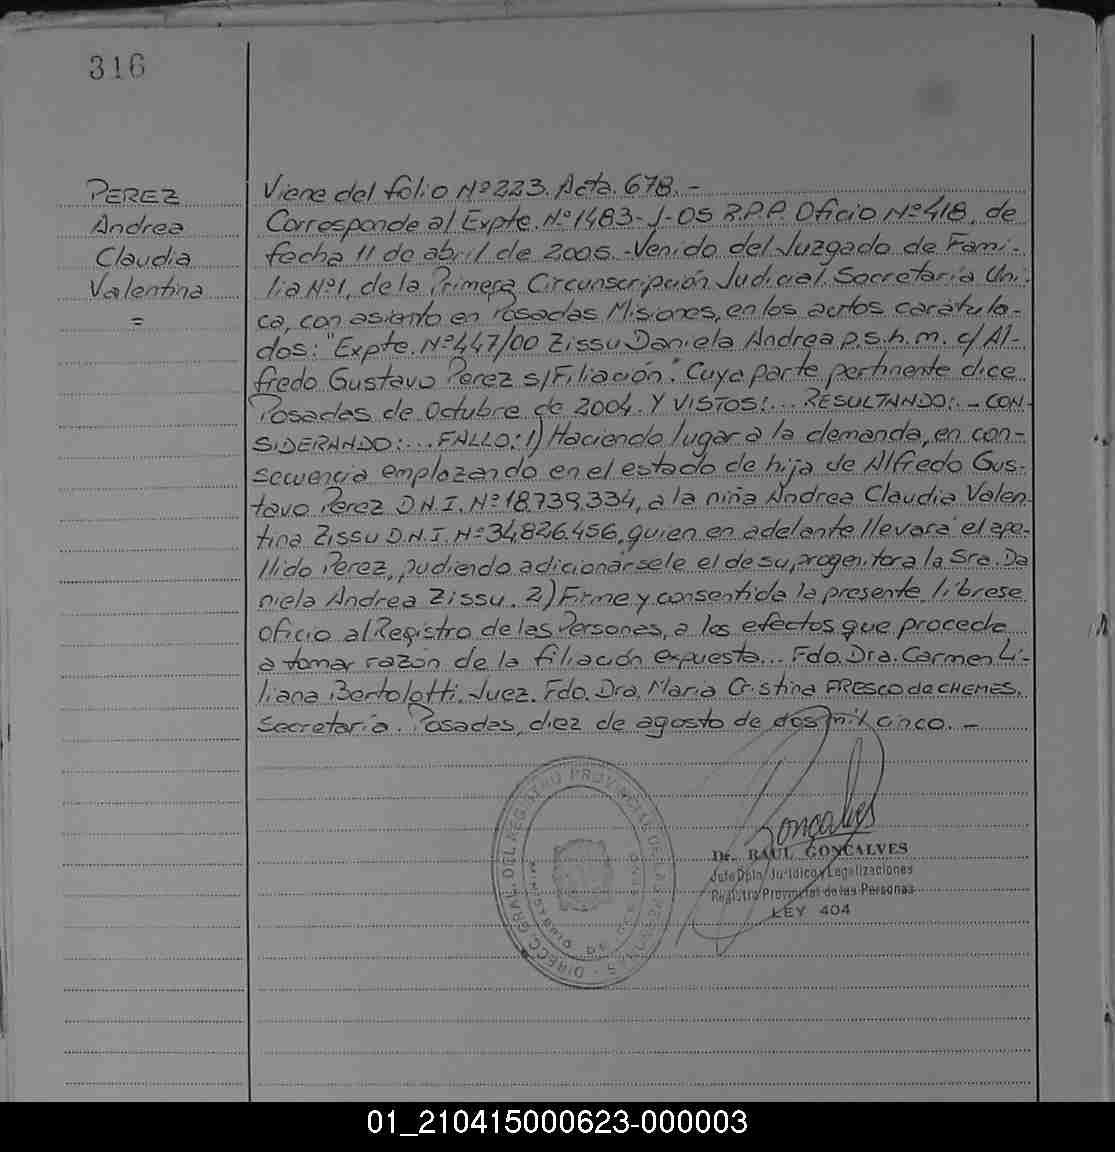 316
PEREZ
Andrea
Claudia
Valentina
=
Viene del folio Nº223. Acta. 678.-
Corresponde al Expte. Nº1483-J-05 R.P.P. Oficio Nº418, de
fecha 11 de abril de 2005.-Venido del Juzgado de Fami-
lia Nº1, de la Primera Circunscripción Judicial Secretaría Úni-
ca, con asiento en Posadas Misiones, en los autos caratula-
dos: "Expte. Nº447/00 Zissu Daniela Andrea p.s.h.m. c/ Al-
fredo Gustavo Perez s/Filiación". Cuya parte pertinente dice
Posadas de Octubre de 2004. Y VISTOS:... RESULTANDO:.- CON-
SIDERANDO:... FALLO: 1) Haciendo lugar a la demanda, en con-
secuencia emplazando en el estado de hija de Alfredo Gus-
tavo Perez D.N.I. Nº18.739.334, a la niña Andrea Claudia Valen-
tina Zissu D.N.I. Nº34.826.456, quien en adelante llevará el ape-
llido Perez, pudiendo adicionársele el de su progenitora la Sra. Da
niela Andrea Zissu. 2) Firme y consentida la presente, líbrese
oficio al Registro de las Personas, a los efectos que proceda
a tomar razón de la filiación expuesta... Fdo. Dra. Carmen Li-
liana Bertolotti. Juez. Fdo. Dra. Maria Cristina FRESCO de CHEMES.
Secretaria. Posadas, diez de agosto de dos mil cinco.-
DIRECC. GRAL. DEL REGISTRO PROVINCIAL DE LAS PERSONAS
Gonçalves
Dr. RAUL GONÇALVES
Jefe Dpto. Jurídico y Legalizaciones
Registro Provincial de las Personas
LEY 404
01_210415000623-000003